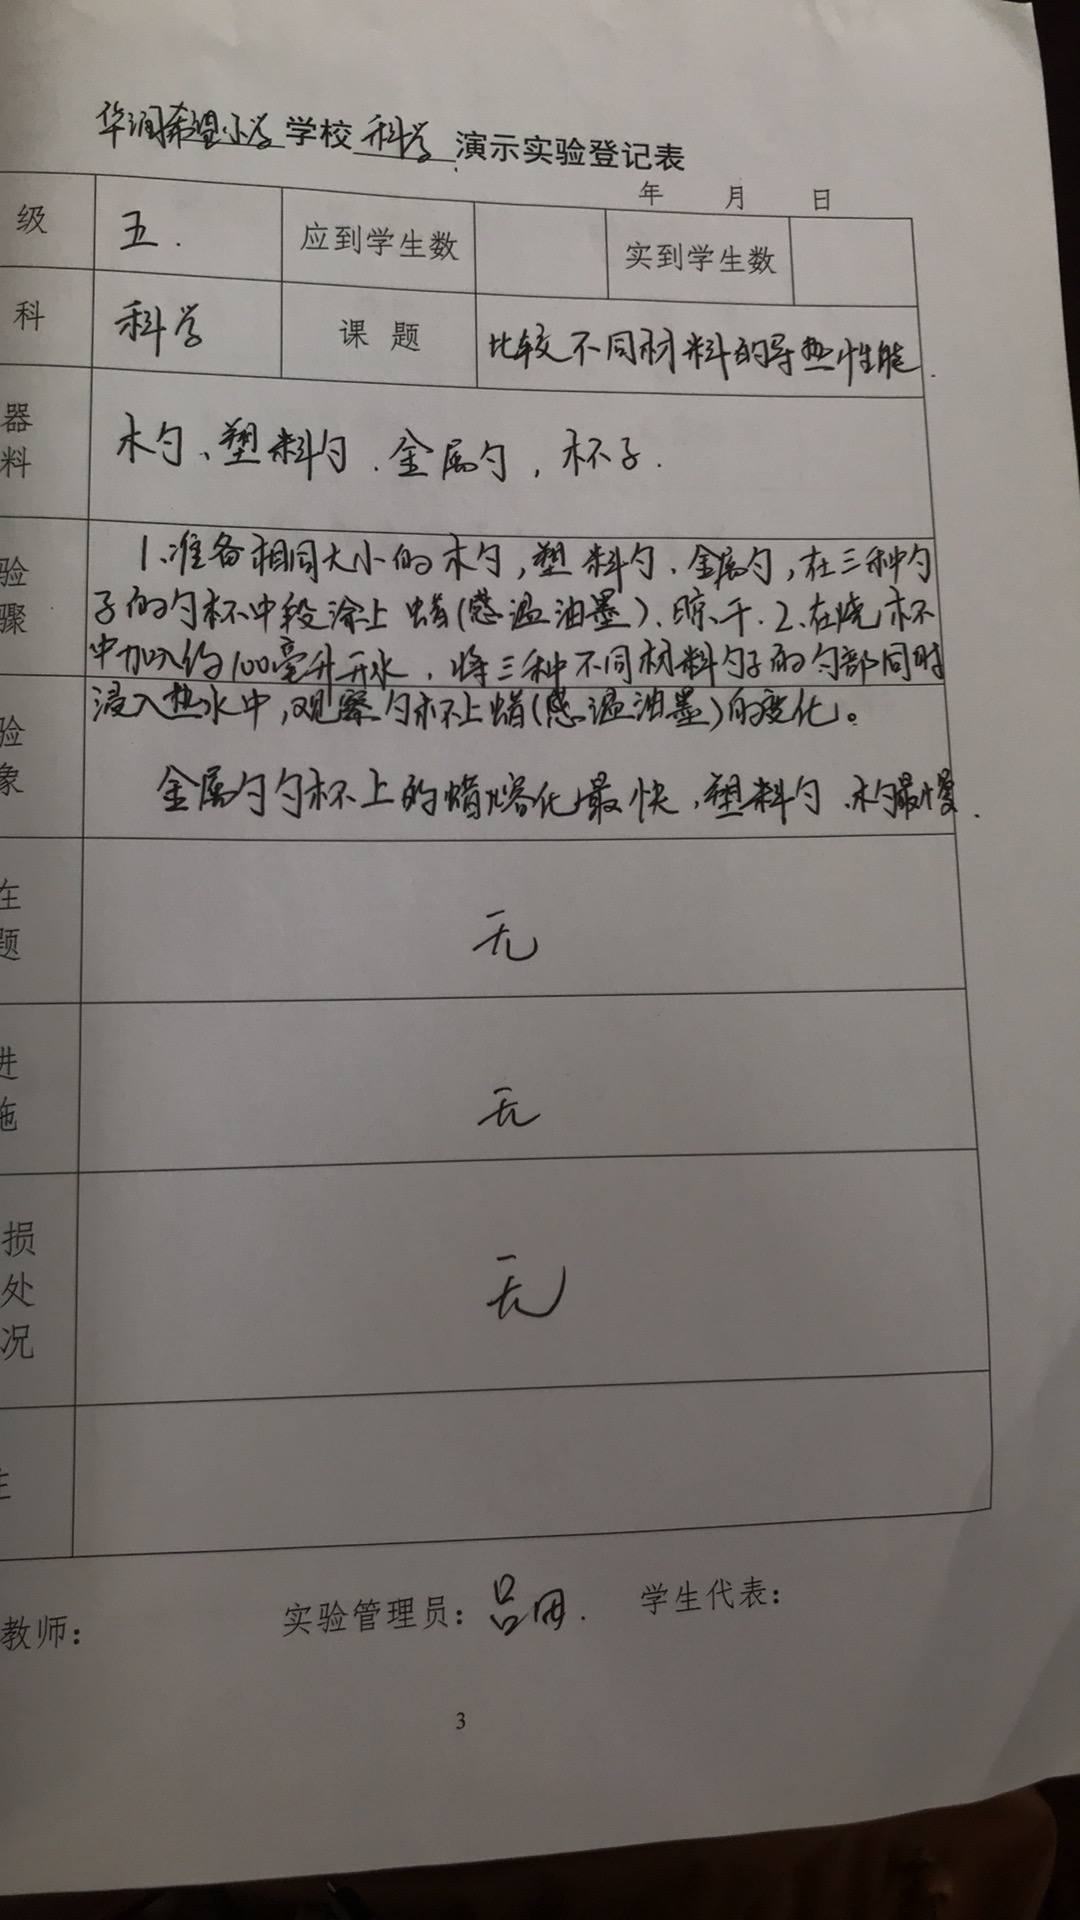 华润希望小学学校科学演示实验登记表
年 月 日
级 五. 应到学生数 实到学生数
科 科学 课题 比较不同材料的导热性能.
器
料
木勺、塑料勺.金属勺,杯子.
验
骤
1.准备相同大小的木勺,塑料勺.金属勺,在三种勺
子的勺杯中段涂上蜡(感温油墨)、晾干.2.在烧杯
中加入约100毫升开水,将三种不同材料勺子的勺部同时
浸入热水中,观察勺杯上蜡(感温油墨)的变化。
验
象
金属勺勺杯上的蜡熔化最快,塑料勺.木勺最慢.
在
题
无
进
施
无
损
处
况
无
教师: 实验管理员:吕 学生代表:
3